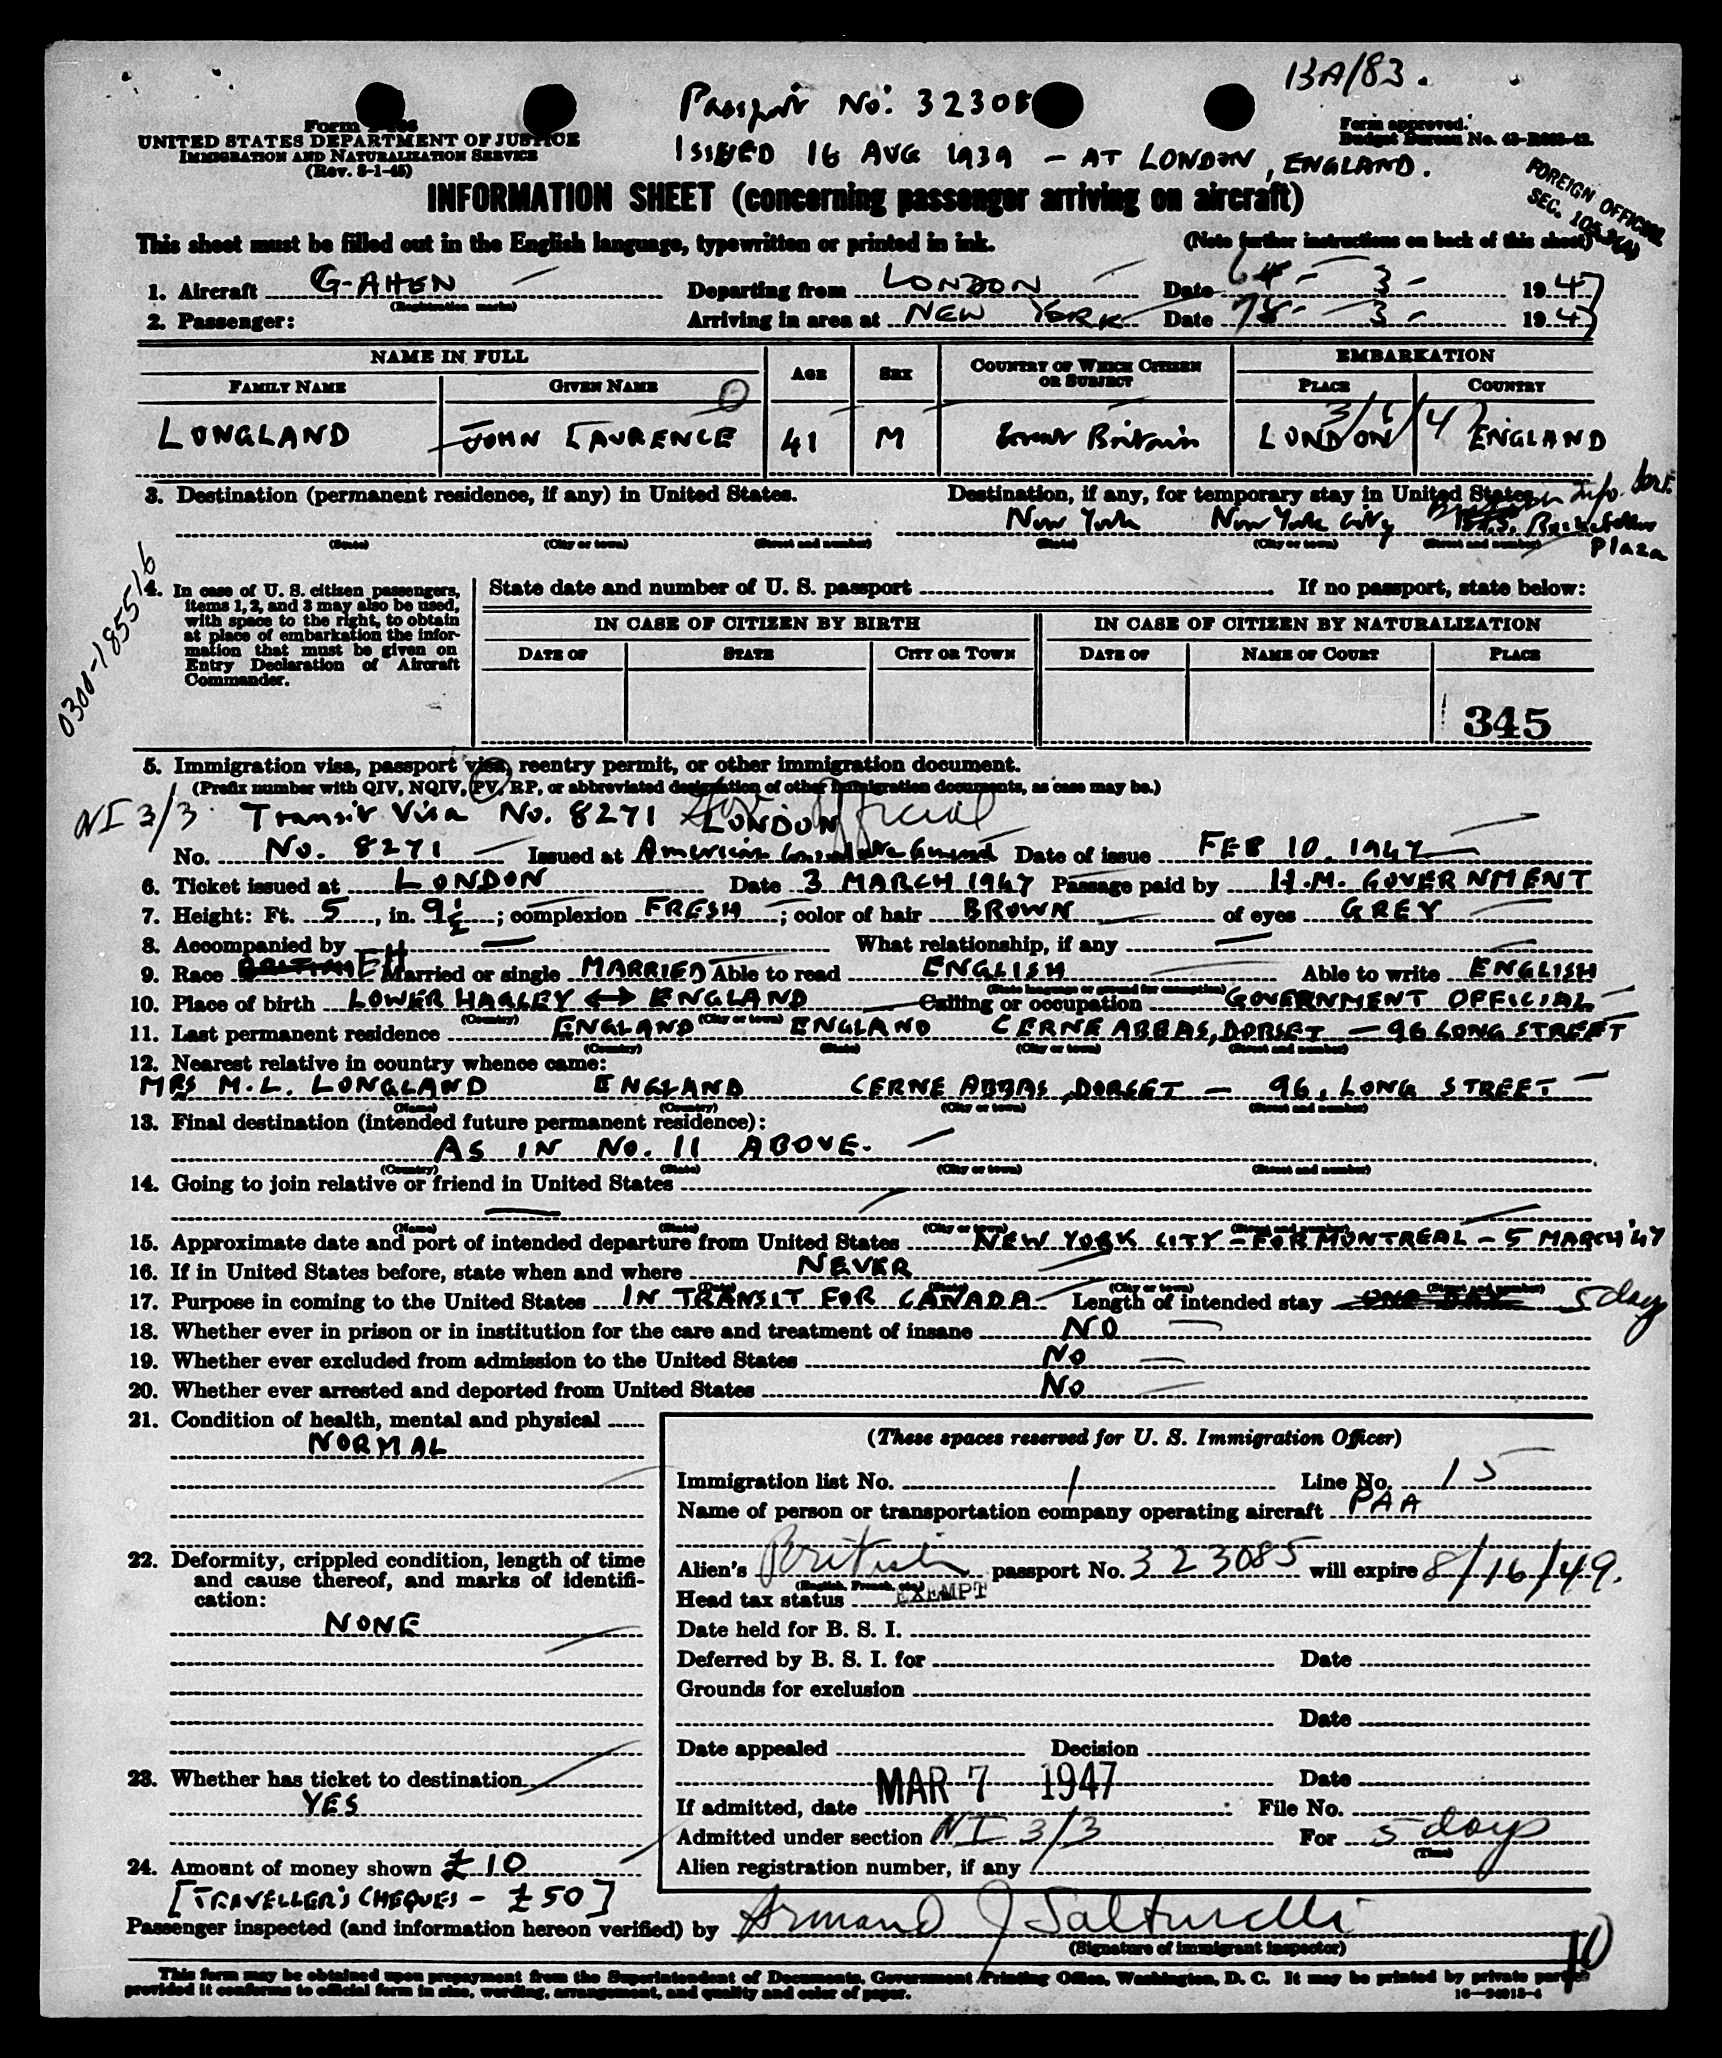 BA/83.
Passport No: 32308
ISSUED 16 AUG 1939 - AT LONDON, ENGLAND.
Form
UNITED STATES DEPARTMENT OF JUSTICE
IMMIGRATION AND NATURALIZATION SERVICE
(Rev. 8-1-45)
Form approved.
Budget Bureau No. 43-R263-42.
FOREIGN OFFICIAL
SEC.
INFORMATION SHEET (concerning passenger arriving on aircraft)
This sheet must be filled out in the English language, typewritten or printed in ink. (Note further instructions on back of this sheet)
1. Aircraft G-AHEN Departing from LONDON Date 6 - 3 - 1947
(Registration marks)
2. Passenger: Arriving in area at NEW YORK Date 7 - 3 - 1947
NAME IN FULL AGE SEX COUNTRY OF WHICH CITIZEN OR SUBJECT EMBARKATION
FAMILY NAME GIVEN NAME PLACE COUNTRY
3/6/47
LONGLAND JOHN LAURENCE 41 M Great Britain LONDON ENGLAND
3. Destination (permanent residence, if any) in United States. Destination, if any, for temporary stay in United States
British Info. Serv.
New York New York City Rockefeller
Plaza
(State) (City or town) (Street and number) (State) (City or town) (Street and number)
0300-185516
4. In case of U. S. citizen passengers, items 1, 2, and 3 may also be used, with space to the right, to obtain at place of embarkation the information that must be given on Entry Declaration of Aircraft Commander.
State date and number of U. S. passport If no passport, state below:
IN CASE OF CITIZEN BY BIRTH IN CASE OF CITIZEN BY NATURALIZATION
DATE OF STATE CITY OR TOWN DATE OF NAME OF COURT PLACE
345
5. Immigration visa, passport visa, reentry permit, or other immigration document.
(Prefix number with QIV, NQIV, PV, RP, or abbreviated designation of other immigration documents, as case may be.)
NI 3/3 Transit Visa No. 8271 LONDON Official
No. No. 8271 Issued at American Consulate General Date of issue FEB 10, 1947
6. Ticket issued at LONDON Date 3 MARCH 1947 Passage paid by H.M. GOVERNMENT
7. Height: Ft. 5, in. 9½; complexion FRESH; color of hair BROWN of eyes GREY
8. Accompanied by — What relationship, if any —
9. Race BRITISH EH Married or single MARRIED Able to read ENGLISH Able to write ENGLISH
(State language or ground for exemption)
10. Place of birth LOWER HAGLEY ↔ ENGLAND Calling or occupation GOVERNMENT OFFICIAL
(Country) (City or town)
11. Last permanent residence ENGLAND ENGLAND CERNE ABBAS, DORSET - 96 LONG STREET
(Country) (State) (City or town) (Street and number)
12. Nearest relative in country whence came:
MRS M.L. LONGLAND ENGLAND CERNE ABBAS, DORSET - 96, LONG STREET
(Name) (Country) (City or town) (Street and number)
13. Final destination (intended future permanent residence):
AS IN NO. 11 ABOVE.
(Country) (State) (City or town) (Street and number)
14. Going to join relative or friend in United States
—
(Name) (State) (City or town) (Street and number)
15. Approximate date and port of intended departure from United States NEW YORK CITY - FOR MONTREAL - 5 MARCH '47
16. If in United States before, state when and where NEVER
(Date) (State) (City or town) (Street and number)
17. Purpose in coming to the United States IN TRANSIT FOR CANADA Length of intended stay ONE DAY 5 days
18. Whether ever in prison or in institution for the care and treatment of insane NO
19. Whether ever excluded from admission to the United States NO
20. Whether ever arrested and deported from United States NO
21. Condition of health, mental and physical
NORMAL
22. Deformity, crippled condition, length of time and cause thereof, and marks of identification:
NONE
23. Whether has ticket to destination
YES
24. Amount of money shown £10
[TRAVELLER'S CHEQUES - £50]
(These spaces reserved for U. S. Immigration Officer)
Immigration list No. 1 Line No. 15
Name of person or transportation company operating aircraft PAA
Alien's British passport No. 323085 will expire 8/16/49.
(English, French, etc.)
Head tax status EXEMPT
Date held for B. S. I.
Deferred by B. S. I. for Date
Grounds for exclusion
Date
Date appealed Decision
Date
If admitted, date MAR 7 1947 File No.
Admitted under section NI 3/3 For 5 days
(Time)
Alien registration number, if any
Passenger inspected (and information hereon verified) by Armand J Salturelli
(Signature of immigrant inspector)
10
This form may be obtained upon prepayment from the Superintendent of Documents, Government Printing Office, Washington, D. C. It may be printed by private parties
provided it conforms to official form in size, wording, arrangement, and quality and color of paper.
16—24013-4